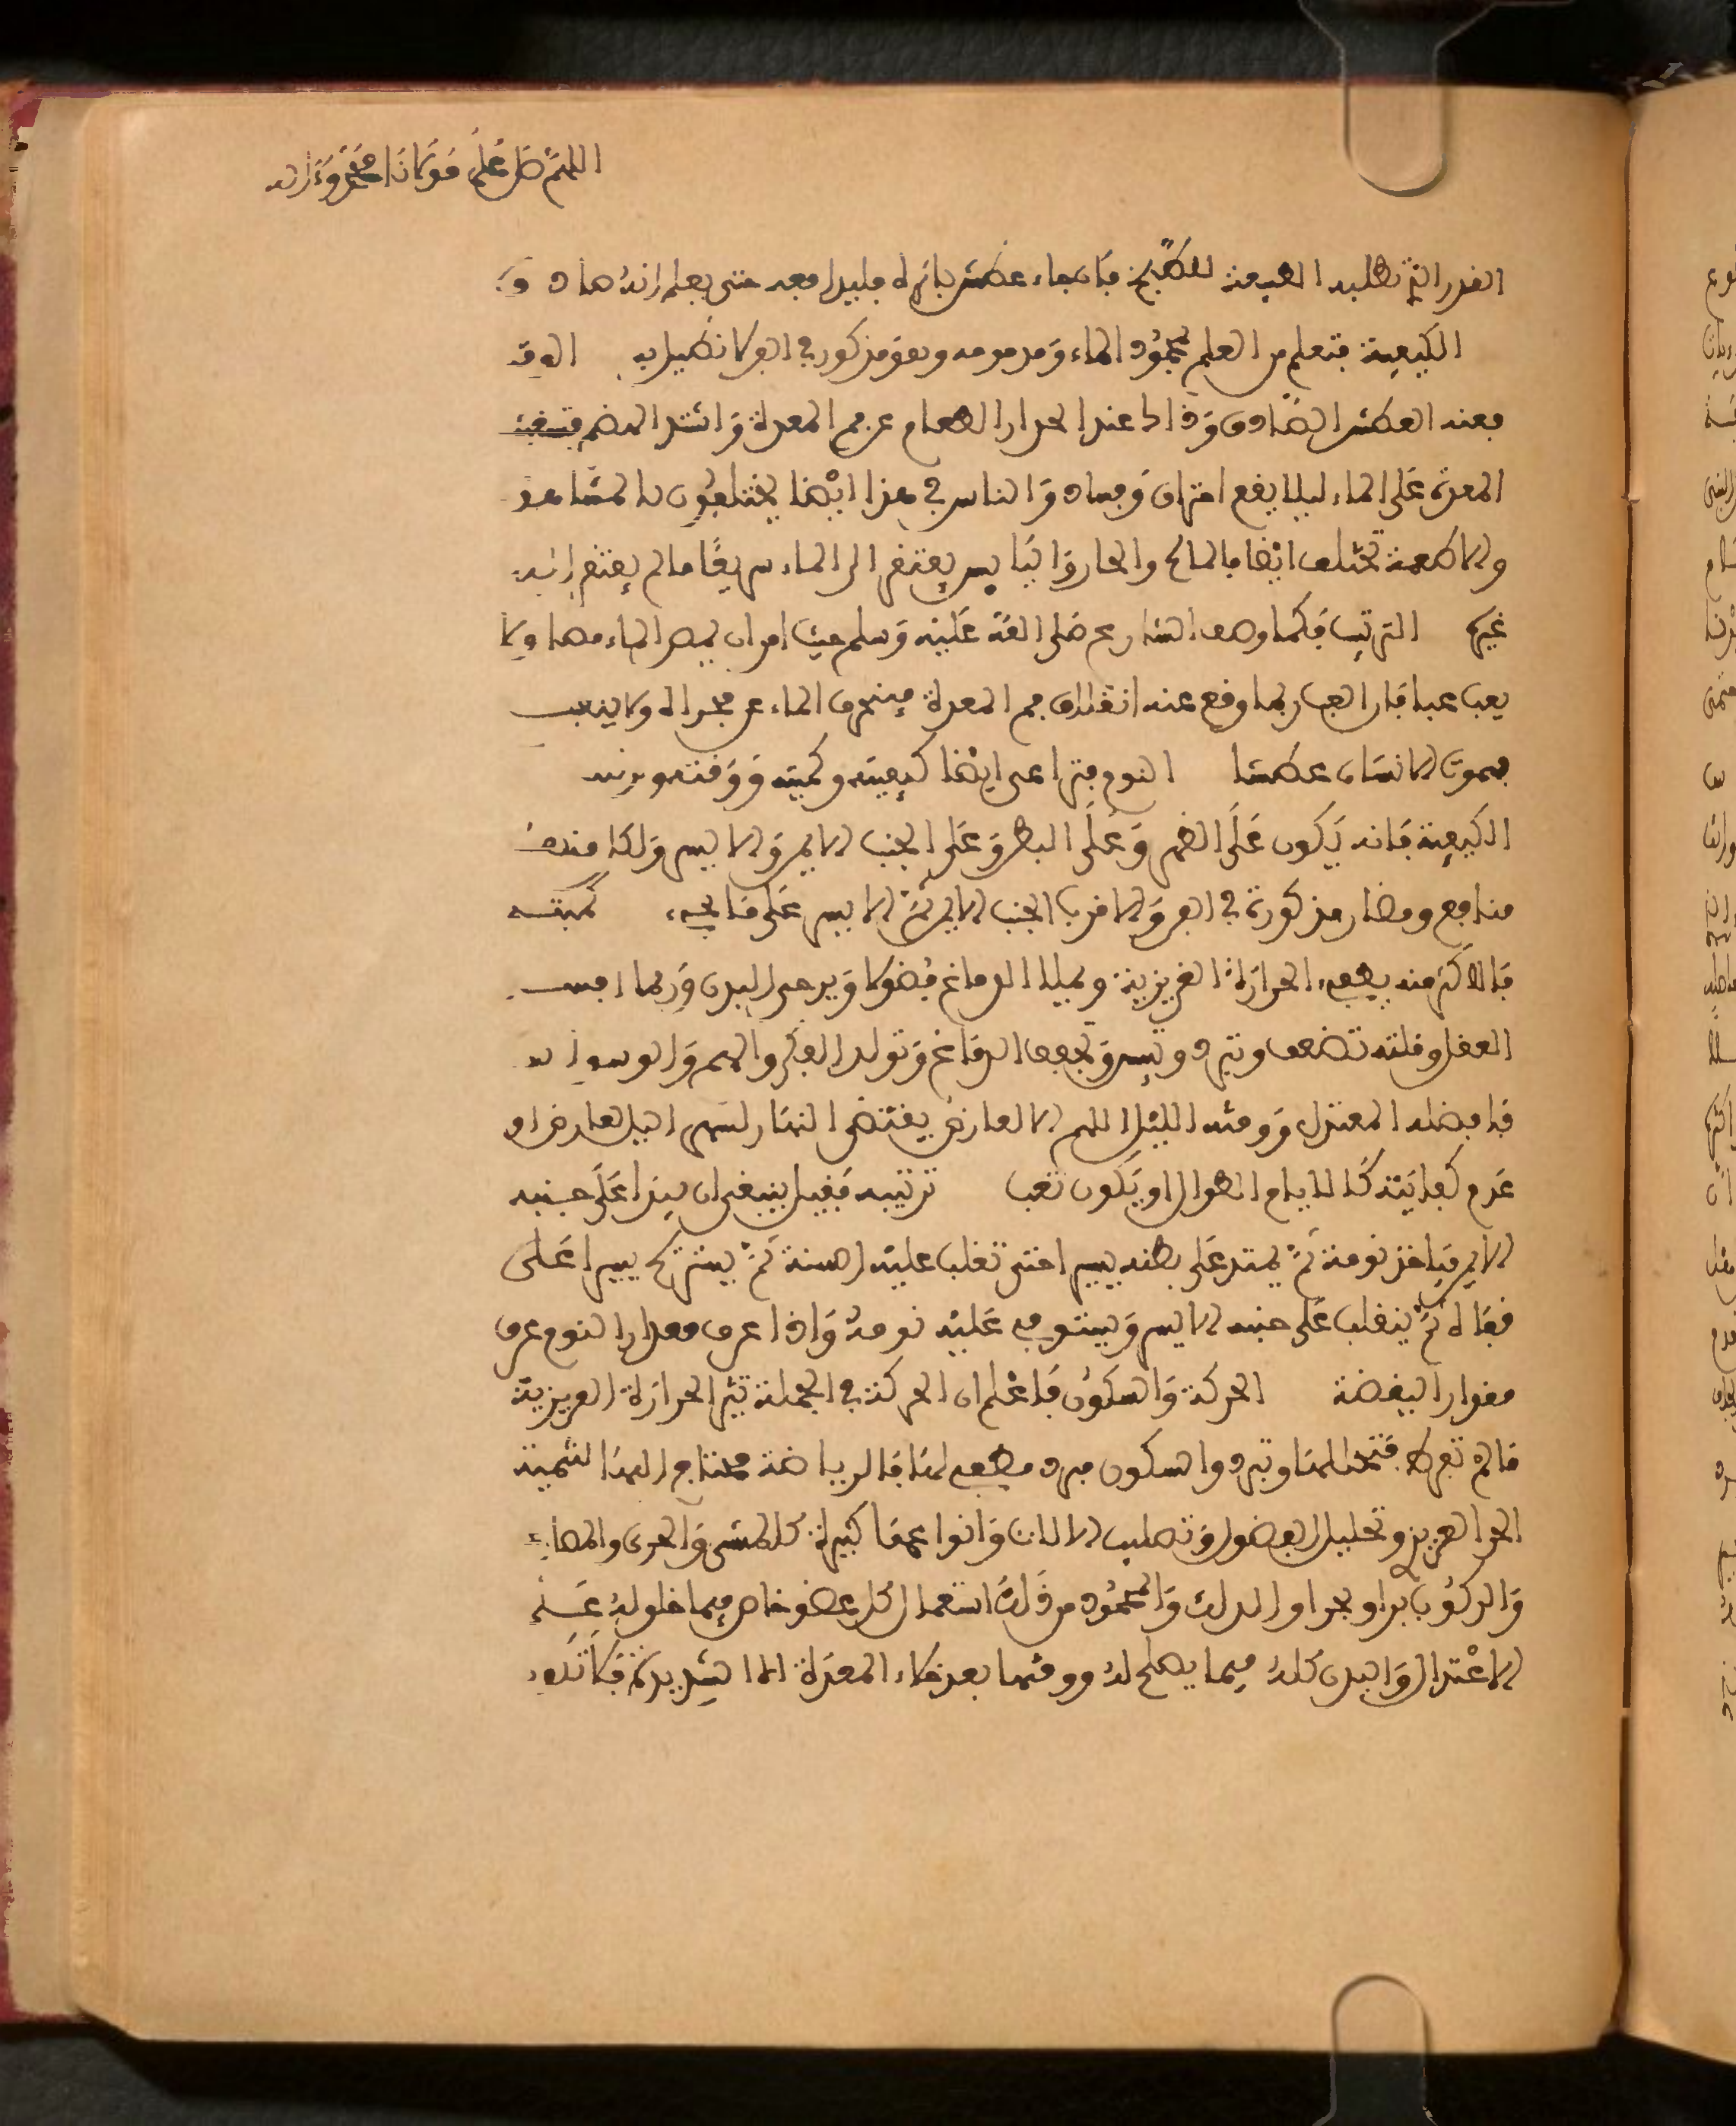 اللهم صل على مولانا محمد وءاله
القدر الذي تطلبه الطبيعة للطبخ فان جاء عطش بازاه قليلا معه حتى يعلم انه صادق
الكيفية فتعلم من العلم بمحمود الماء ومذمومه وهو مذكور في الفن لا نطيل به الوقت
فعند العطش الصادق وذالك عند انحدار الطعام عن فم المعدة واشتد الهضم
المعدة على الماء ليلا يقع احتراق وفساد والناس في هذا ايضا يختلفون المشاهد
والاطعمة تختلف ايضا فالمالح والحار واليابس يفتقر الى الماء سريعا ما لم يفتقر اليه
غيره الترتيب فكما وصف الشارع صلى الله عليه وسلم حيث امر ان يمص الماء مصا ولا
يعب عبا فان العب ربما وقع عنه انغلاق فم المعدة فينحرف الماء عن مجراه ولا يذهب
فيموت الانسان عطشا النوم فتراعى ايضا كيفيته وكميته ووقته وترتيبه
الكيفية فانه يكون على الظهر وعلى البطن وعلى الجنب الايمن والايسر ولكل منها
منافع ومضار مذكورة في الفن والاقرب الجنب الايمن ثم الايسر على ما يجيء كميته
فالاكثر منه يطفيء الحرارة الغريزية ويميلا الدماغ فضولا ويرخى البدن وربما افسد
العقل وقلته تضعف وتبرد وتيبس وتجفف الدماغ وتولد الفكر والهم والوسواس
فافضله المعتدل ووقته الليل اللهم الا لعارض يقتضى النهار لسهر الليل لعارض او
عدم كفايته كالايام الطوال او يكون تعب ترتيبه فقيل ينبغي ان يبدا على جنبه
الايمن فياخذ نومة ثم يمتد على بطنه يسيرا حتى تغلب عليه السنة ثم يسترح يسيرا على
قفاه ثم ينقلب على جنبه الايسر ويستوفي عليه نومه واذا عرف مقدار النوم عرف
مقدار اليقظة الحركة والسكون فاعلم ان الحركة في الجملة تثير الحرارة الغريزية
ما لم تفرط فتحللها وتبرد والسكون مبرد مطفيء لها فالرياضة محتاج اليها لتنمية
الحر الغريزي وتحليل الفضول وتصليب الالات وانواعها كثيرة كالمشي والجرى والمصارعة
والركوب برا وبحرا والدلك والمحمود من ذلك استعمال كل عضو خاص فيما خلق له على
الاعتدال والبدن كله فيما يصلح له ووقتها بعد خلاء المعدة اما الشديدة فكا